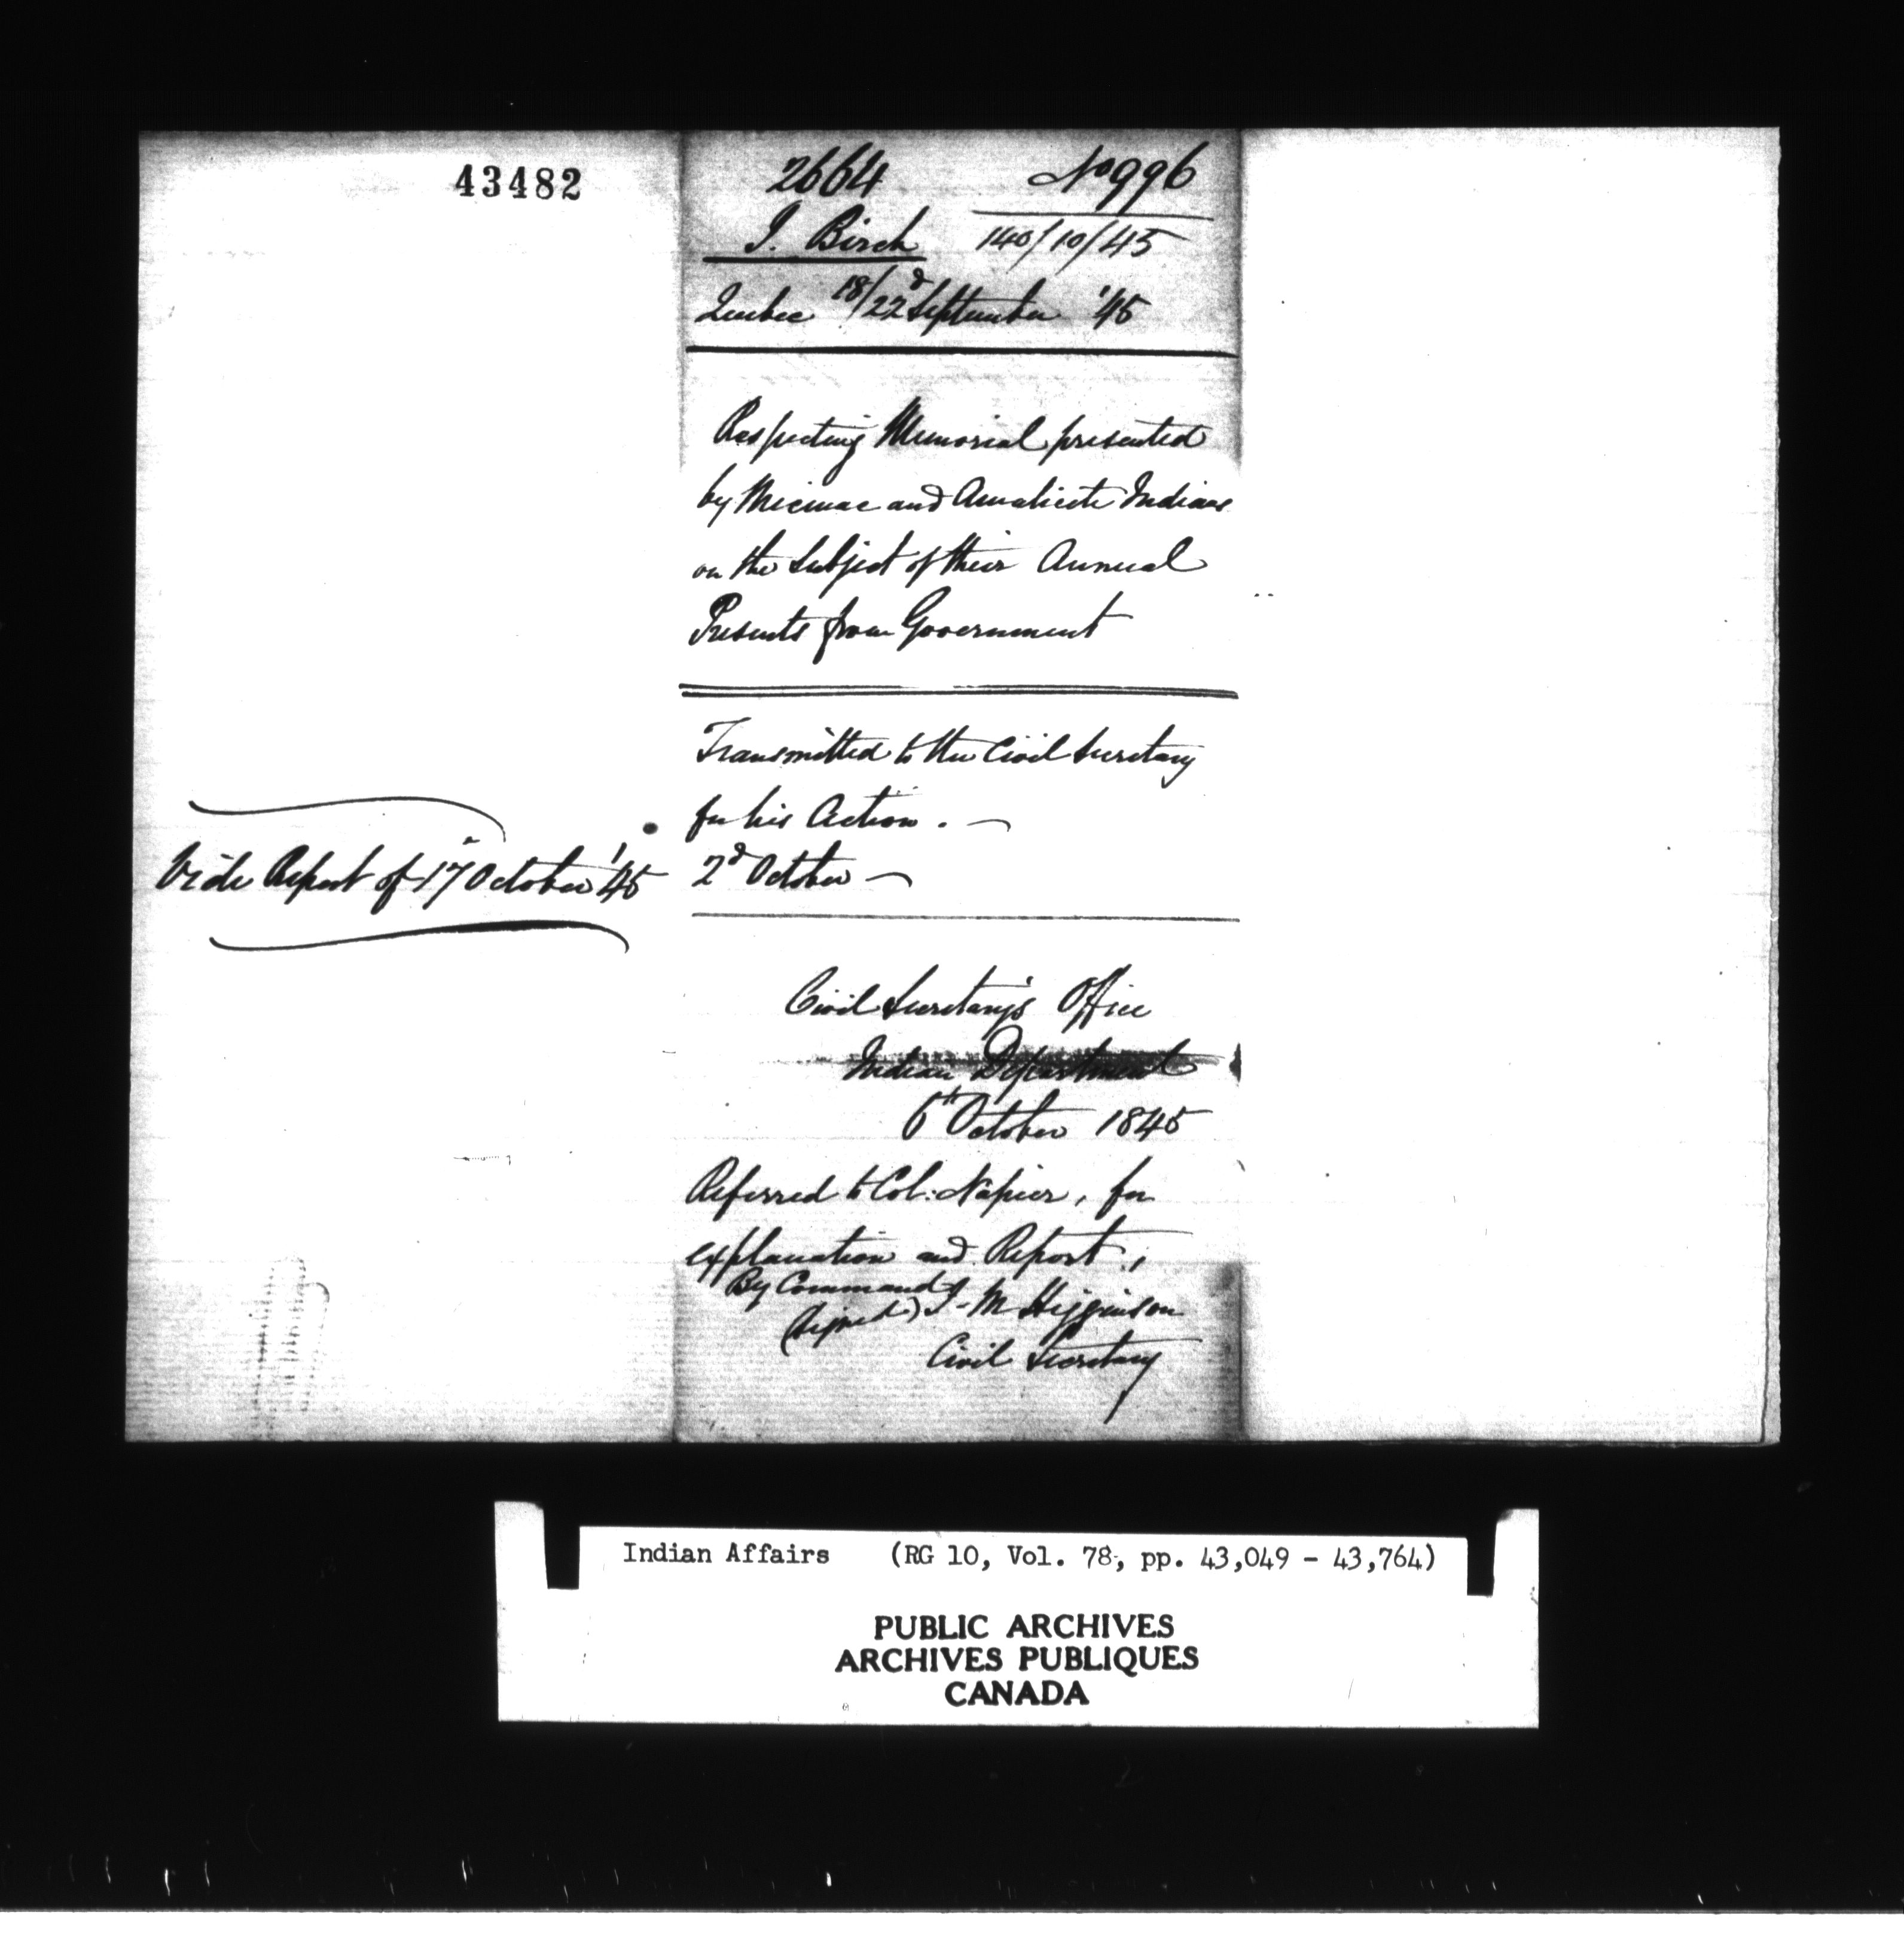 43482
2664 No 996
I. Birch 140/10/45
Quebec 18/22d September '45
Respecting Memorial presented
by Micmac and Amalicite Indians
on the Subject of their Annual
Presents from Government
Transmitted to the Civil Secretary
for his Action. —
2d October —
Vide Report of 17 October '45
Civil Secretary's Office
Indian Department
6th October 1845
Referred to Col: Napier, for
explanation and Report,
By Command
(Signed) J. M Higginson
Civil Secretary
Indian Affairs (RG 10, Vol. 78, pp. 43,049 - 43,764)
PUBLIC ARCHIVES
ARCHIVES PUBLIQUES
CANADA